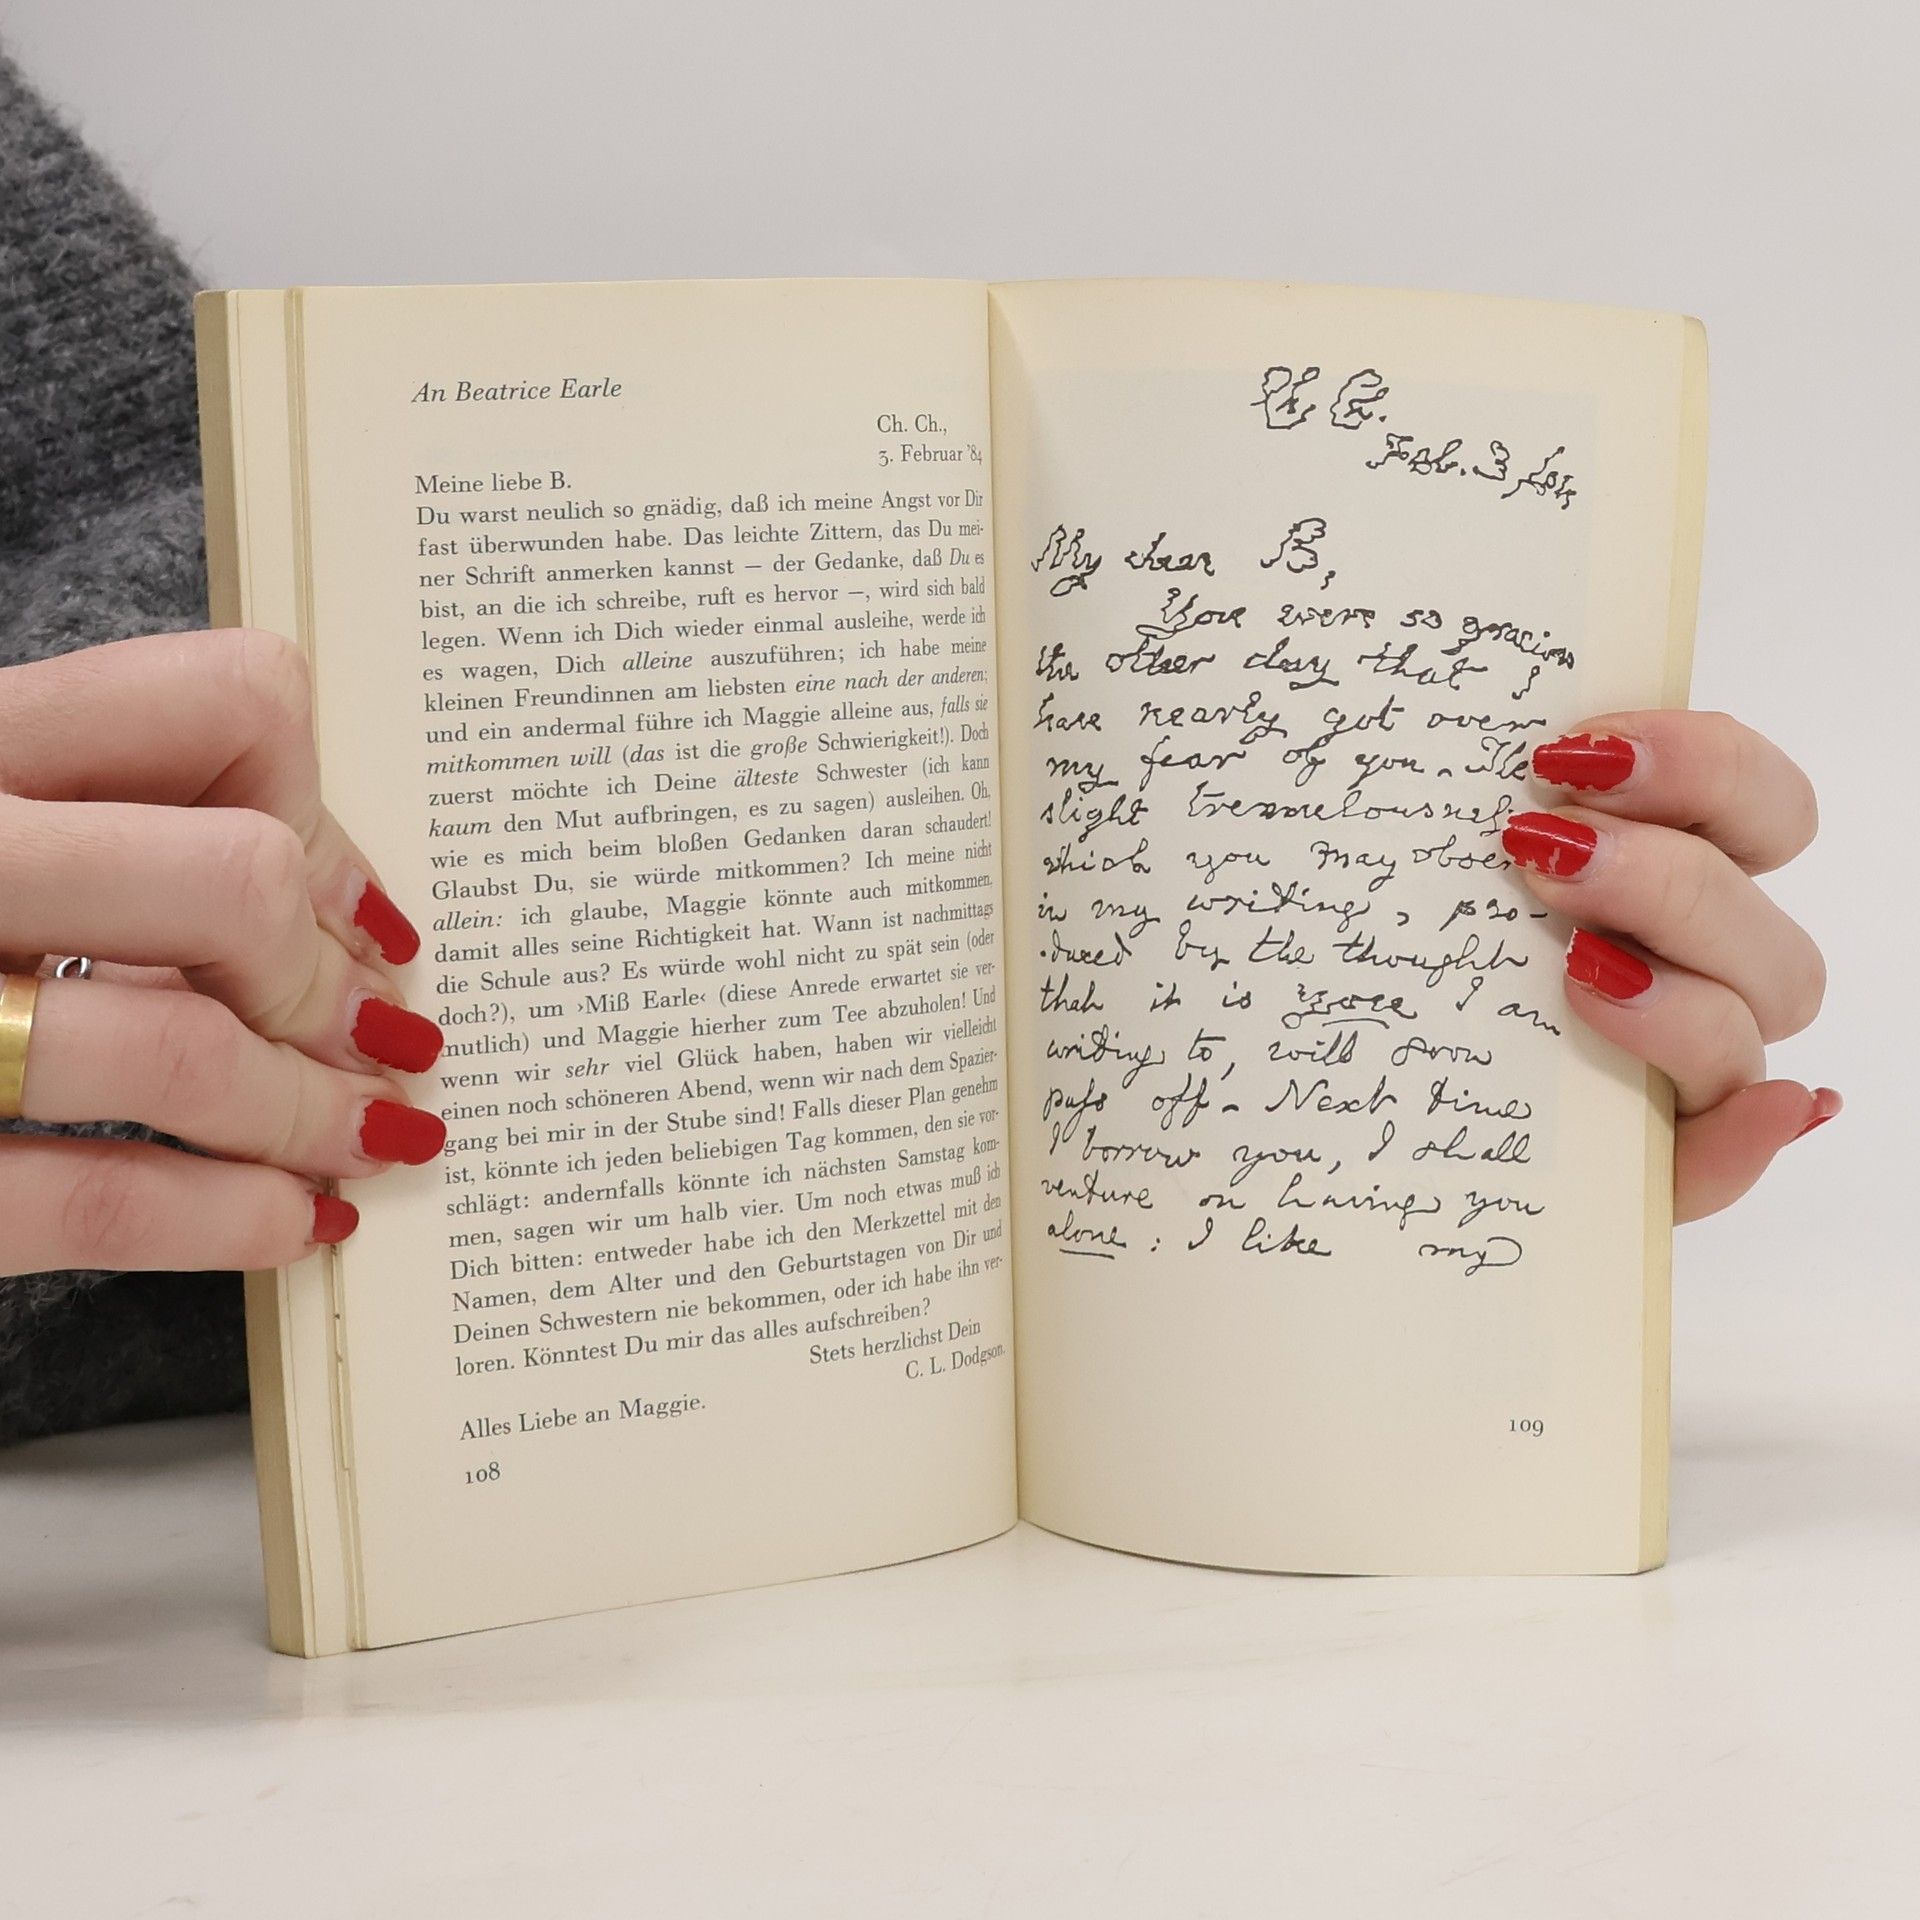 An Beatrice Earle
Ch. Ch.,
3. Februar '84
Meine liebe B.
Du warst neulich so gnädig, daß ich meine Angst vor Dir
fast überwunden habe. Das leichte Zittern, das Du mei-
ner Schrift anmerken kannst – der Gedanke, daß Du es
bist, an die ich schreibe, ruft es hervor –, wird sich bald
legen. Wenn ich Dich wieder einmal ausleihe, werde ich
es wagen, Dich alleine auszuführen; ich habe meine
kleinen Freundinnen am liebsten eine nach der anderen;
und ein andermal führe ich Maggie alleine aus, falls sie
mitkommen will (das ist die große Schwierigkeit!). Doch
zuerst möchte ich Deine älteste Schwester (ich kann
kaum den Mut aufbringen, es zu sagen) ausleihen. Oh,
wie es mich beim bloßen Gedanken daran schaudert!
Glaubst Du, sie würde mitkommen? Ich meine nicht
allein: ich glaube, Maggie könnte auch mitkommen,
damit alles seine Richtigkeit hat. Wann ist nachmittags
die Schule aus? Es würde wohl nicht zu spät sein (oder
doch?), um ›Miß Earle‹ (diese Anrede erwartet sie ver-
mutlich) und Maggie hierher zum Tee abzuholen! Und
wenn wir sehr viel Glück haben, haben wir vielleicht
einen noch schöneren Abend, wenn wir nach dem Spazier-
gang bei mir in der Stube sind! Falls dieser Plan genehm
ist, könnte ich jeden beliebigen Tag kommen, den sie vor-
schlägt: andernfalls könnte ich nächsten Samstag kom-
men, sagen wir um halb vier. Um noch etwas muß ich
Dich bitten: entweder habe ich den Merkzettel mit den
Namen, dem Alter und den Geburtstagen von Dir und
Deinen Schwestern nie bekommen, oder ich habe ihn ver-
loren. Könntest Du mir das alles aufschreiben?
Stets herzlichst Dein
C. L. Dodgson.
Alles Liebe an Maggie.
108
Ch. Ch.
Feb. 3 /84
My dear B,
You were so gracious
the other day that I
have nearly got over
my fear of you. The
slight tremulousness
which you may
in my writing, pro-
duced by the thought
that it is you I am
writing to, will soon
pass off. Next time
I borrow you, I shall
venture on having you
alone: I like my
109